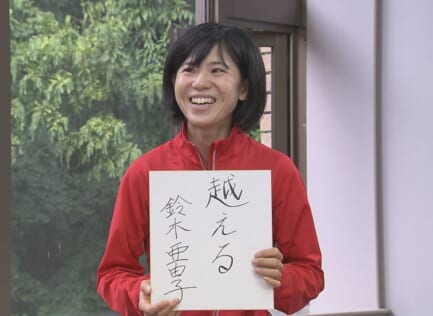 越える
鈴木亜由子